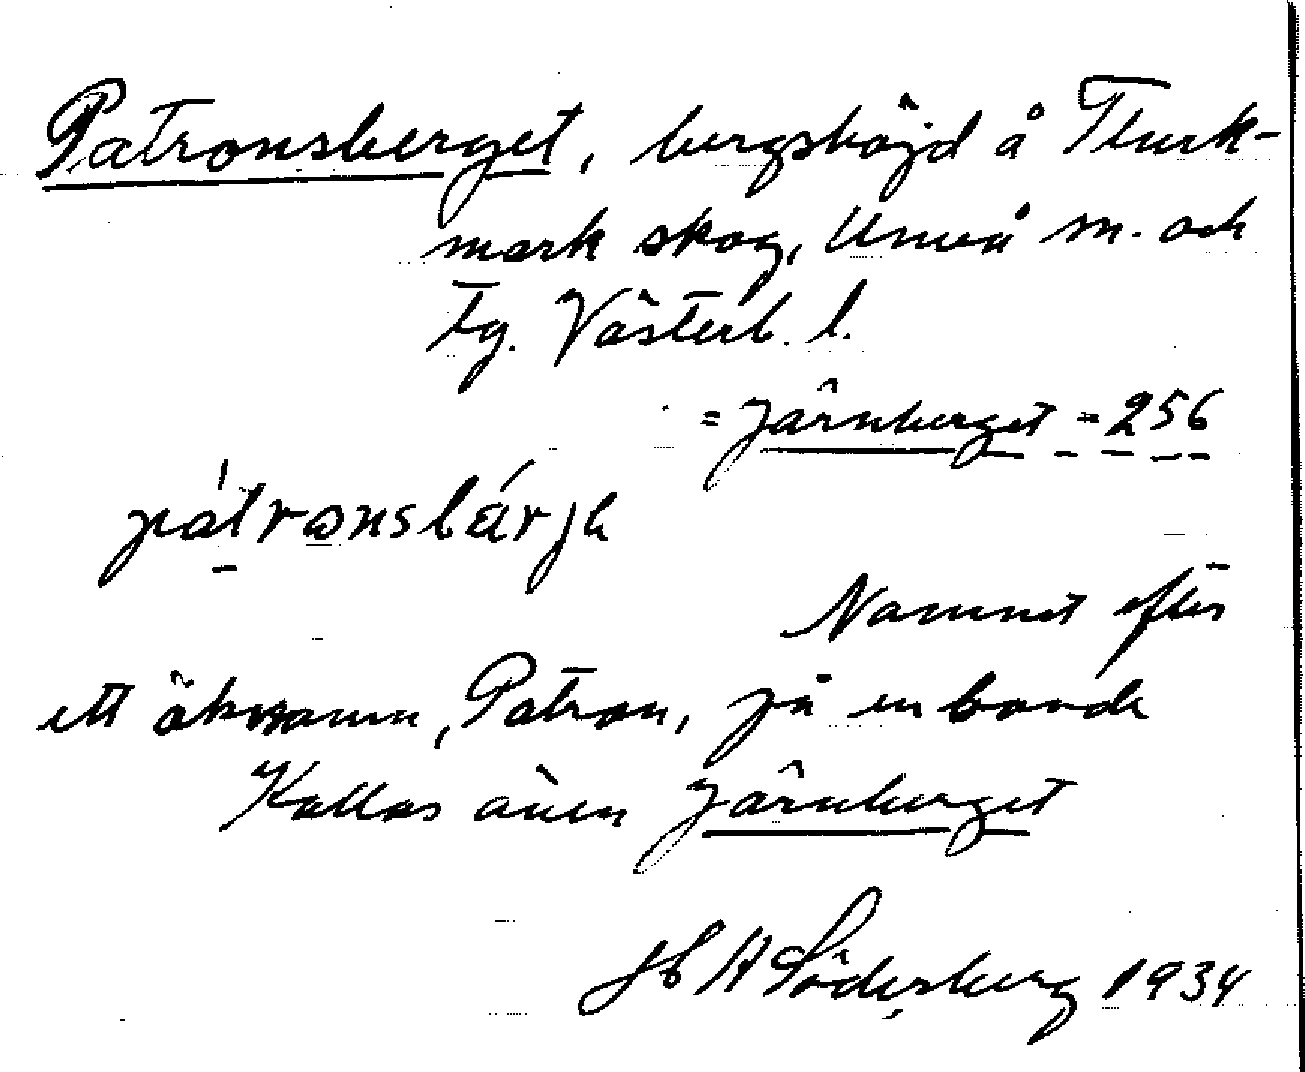 Patronsberget, bergshöjd å Flurk-
mark skog, Umeå sn. och
Tg. Västerb. l.
= Järnberget - 256
pátronsbǽrje
Namnet efter
ett öknamn, Patron, på en bonde
Kallas även Järnberget
H A Söderberg 1934